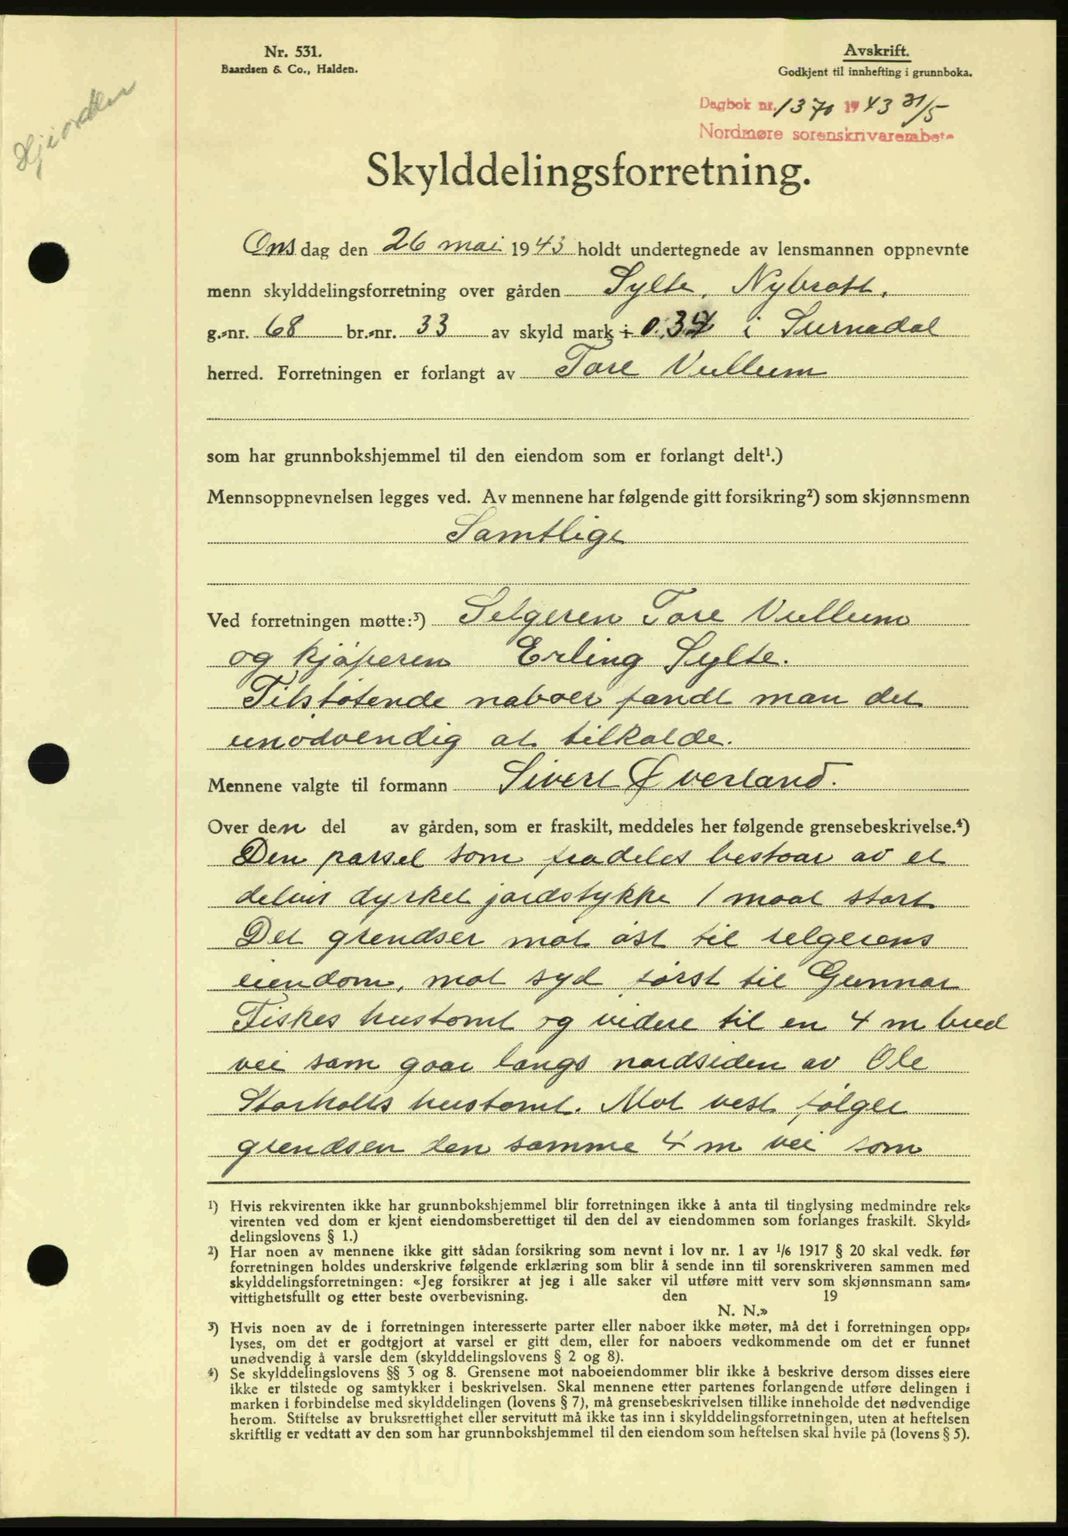 Nr. 531.
Baardsen & Co., Halden.
Avskrift.
Godkjent til innhefting i grunnboka.
Dagbok nr. 1370 1943 31/5
Nordmøre sorenskrivarembete
Skylddelingsforretning.
Onsdag den 26 mai 1943 holdt undertegnede av lensmannen oppnevnte
menn skylddelingsforretning over gården Sylte, Nybrott,
g.-nr. 68 br.-nr. 33 av skyld mark i Surnadal
herred. Forretningen er forlangt av Tore Vullum
som har grunnbokshjemmel til den eiendom som er forlangt delt¹.)
Mennsoppnevnelsen legges ved. Av mennene har følgende gitt forsikring²) som skjønnsmenn
Samtlige
Ved forretningen møtte:³) Selgeren Tore Vullum
og kjøperen Erling Sylte.
Tilstøtende naboer fandt man det
unødvendig at tilkalde.
Mennene valgte til formann Sivert Øverland.
Over den del av gården, som er fraskilt, meddeles her følgende grensebeskrivelse.⁴)
Den parsel som fradeles bestaar av et
delvis dyrket jordstykke 1 maal stort
Det grendser mot øst til selgerens
eiendom, mot syd først til Gunnar
Fiskes hustomt og videre til en 4 m bred
vei som gaar langs nordsiden av Ole
Storholts hustomt. Mot vest følger
grendsen den samme 4 m vei som
¹) Hvis rekvirenten ikke har grunnbokshjemmel blir forretningen ikke å anta til tinglysing medmindre rek-
virenten ved dom er kjent eiendomsberettiget til den del av eiendommen som forlanges fraskilt. Skyld-
delingslovens § 1.)
²) Har noen av mennene ikke gitt sådan forsikring som nevnt i lov nr. 1 av 1/6 1917 § 20 skal vedk. før
forretningen holdes underskrive følgende erklæring som blir å sende inn til sorenskriveren sammen med
skylddelingsforretningen: «Jeg forsikrer at jeg i alle saker vil utføre mitt verv som skjønnsmann sam-
vittighetsfullt og etter beste overbevisning. den 19
N. N.»
³) Hvis noen av de i forretningen interesserte parter eller naboer ikke møter, må det i forretningen opp-
lyses, om det er godtgjort at varsel er gitt dem, eller for naboers vedkommende om det er funnet
unødvendig å varsle dem (skylddelingslovens § 2 og 8).
⁴) Se skylddelingslovens §§ 3 og 8. Grensene mot naboeiendommer blir ikke å beskrive dersom disses eiere
ikke er tilstede og samtykker i beskrivelsen. Skal mennene etter partenes forlangende utføre delingen i
marken i forbindelse med skylddelingen (lovens § 7), må grensebeskrivelsen tillike inneholde det nødvendige
herom. Stiftelse av bruksrettighet eller servitutt må ikke tas inn i skylddelingsforretningen, uten at heftelsen
skriftlig er vedtatt av den som har grunnbokshjemmel til den eiendom som heftelsen skal hvile på (lovens § 5).